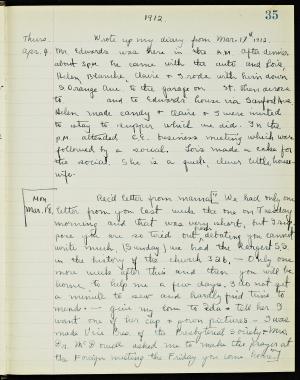 1912
35
Thurs. Wrote up my diary from Mar. 18th 1912.
Apr. 4. Mr. Edwards was here in the A.M. After dinner
about 3 P.M. he came with the auto and Lois,
Helen, Blanche, Claire & I rode with him down
S. Orange Ave to the garage on St. then across
to and to Edwards' house via Sanford Ave.
Helen made candy & Claire & I were invited
to stay to supper which we did. In the
P.M. attended C.E. business meeting which was
followed by a social. Lois made a cake for
the social. She is a quick, clever little house-
wife.
Mon. Rec'd letter from mama "We had only one
Mar. 18. letter from you last week the one on Tuesday
morning and that was very short, but I sup
pose you are so tired out from debating you cannot
write much. (Sunday) we had the largest S.S.
in the history of the church 326, – Only one
more week after this and then you will be
home to help me a few days. I do not get
a minute to sew and hardly find time to
mend. – give my love to Ida & tell her I
want one of her cap & gown pictures – I was
made Vice Pres. of the Presbyterial Society & Mrs.
Dr. McDowell asked me to make the prayer at
the Foreign meeting the Friday you come home"